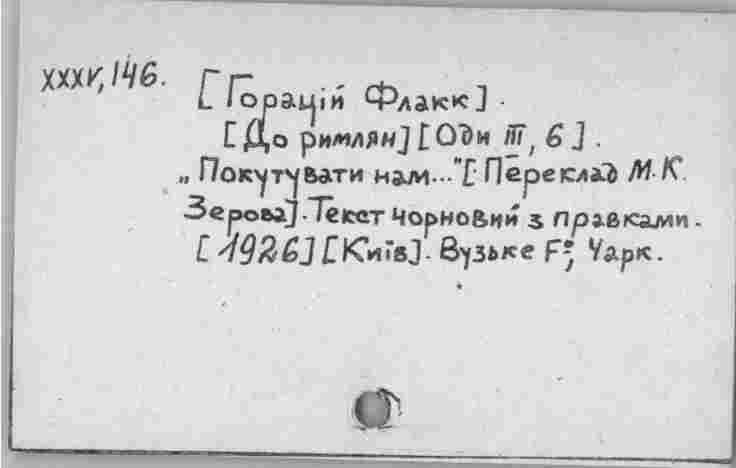 XXXV, 146.
[Горацій Флакк].
[До римлян] [Оди III, 6].
„Покутувати нам..." [Переклад М.К.
Зерова]. Текст чорновий з правками.
[1926] [Київ]. Вузьке F°, 1 арк.